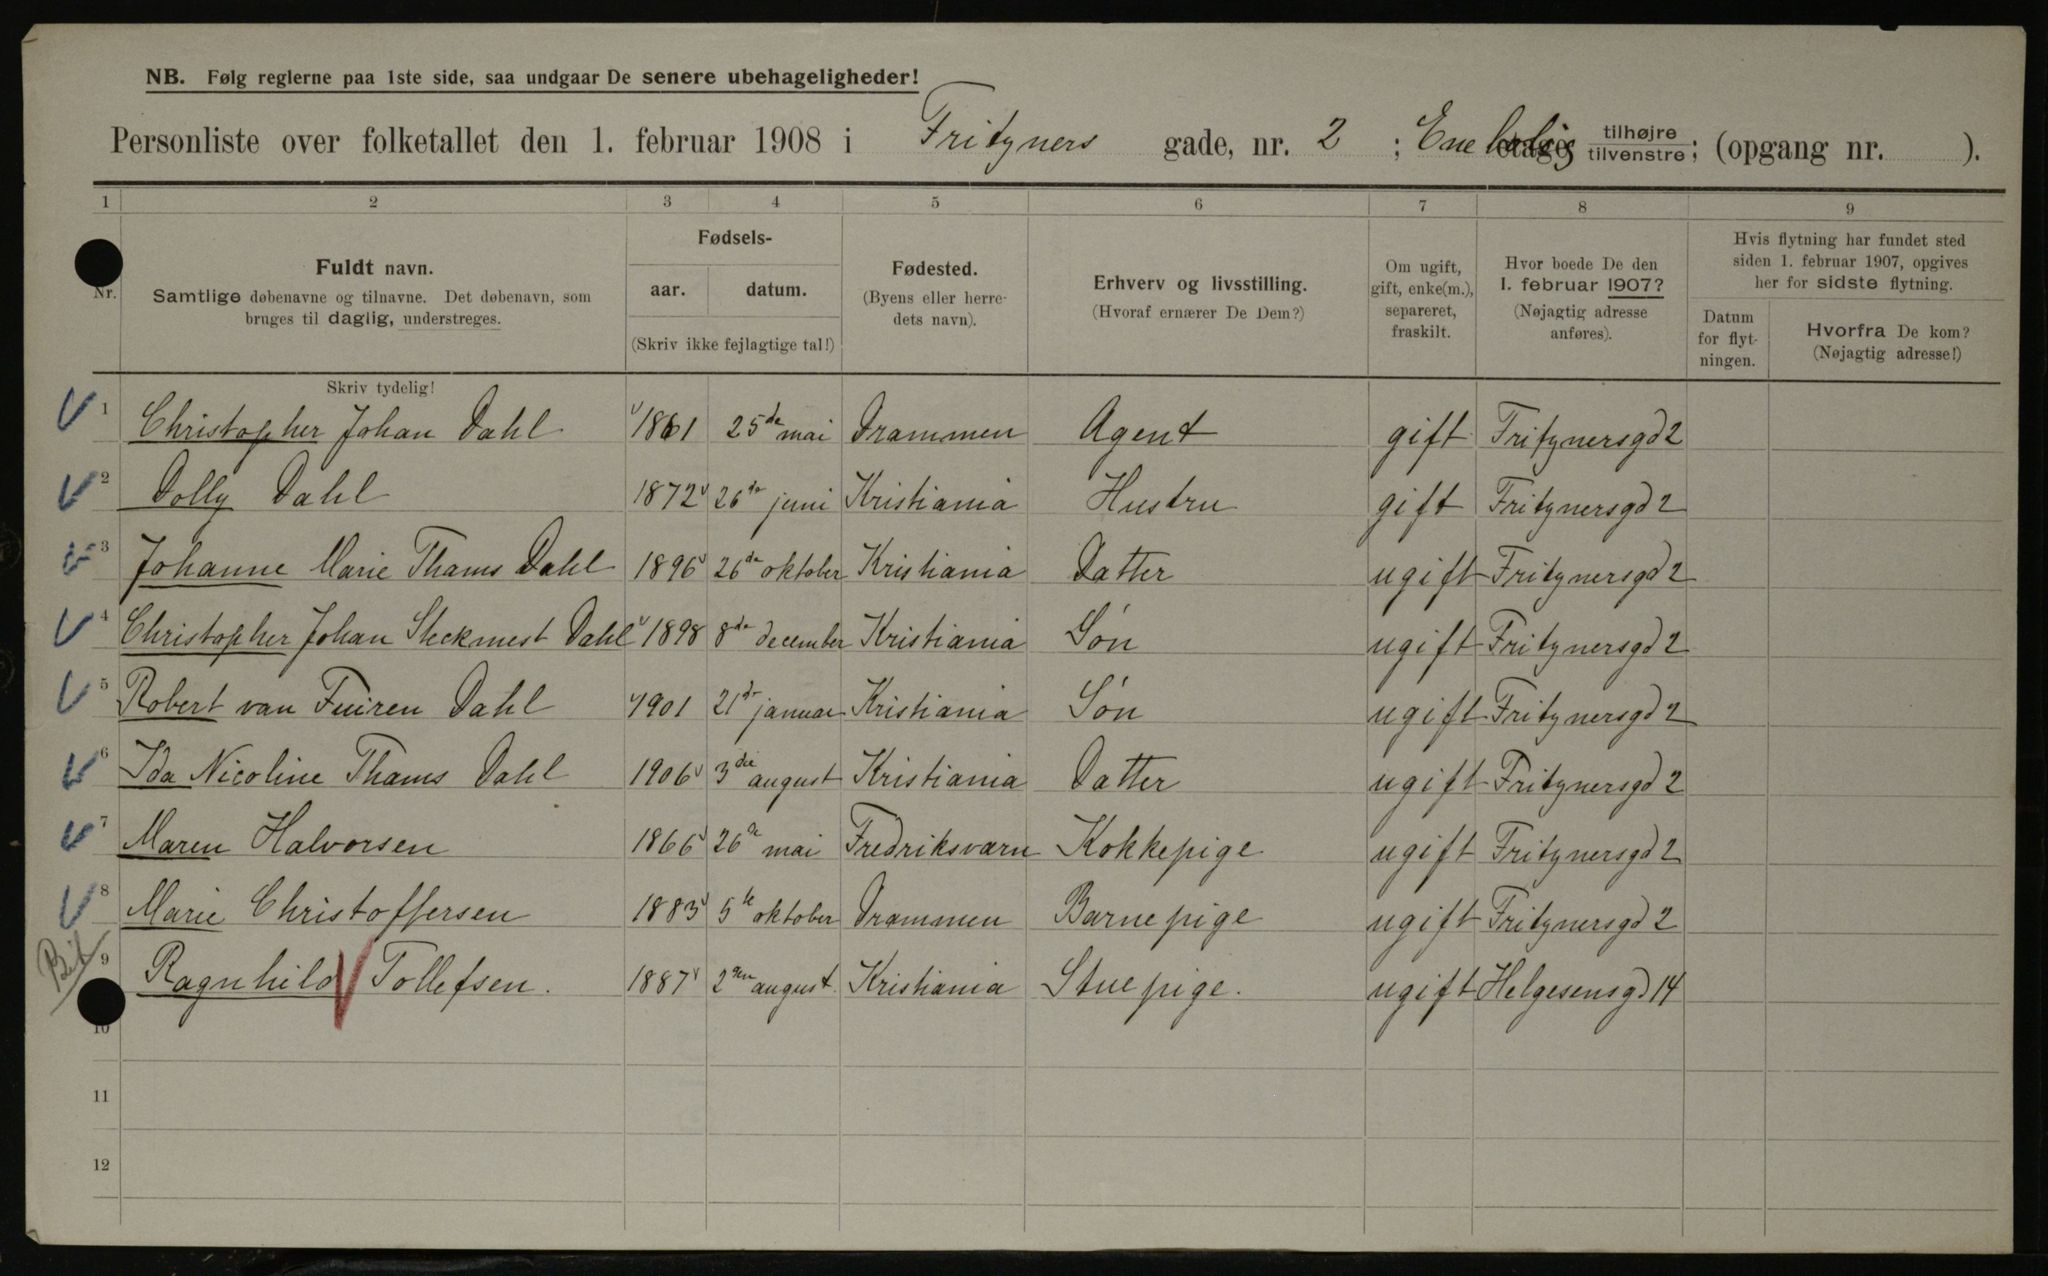 NB. Følg reglerne paa 1ste side, saa undgaar De senere ubehageligheder!
Personliste over folketallet den 1. februar 1908 i Fritzners gade, nr. 2 ; Enebolig etage tilhøjre tilvenstre; (opgang nr. ).
1 2 3 4 5 6 7 8 9
Nr.
Fuldt navn.
Samtlige døbenavne og tilnavne. Det døbenavn, som
bruges til daglig, understreges.
Skriv tydelig!
Fødsels-
aar. datum.
(Skriv ikke fejlagtige tal!)
Fødested.
(Byens eller herre-
dets navn).
Erhverv og livsstilling.
(Hvoraf ernærer De Dem?)
Om ugift,
gift, enke(m.),
separeret,
fraskilt.
Hvor boede De den
1. februar 1907?
(Nøjagtig adresse
anføres).
Hvis flytning har fundet sted
siden 1. februar 1907, opgives
her for sidste flytning.
Datum
for flyt-
ningen.
Hvorfra De kom?
(Nøjagtig adresse!)
1 Christopher Johan Dahl 1861 25de mai Drammen Agent gift Fritznersgd 2
2 Dolly Dahl 1872 26de juni Kristiania Hustru gift Fritznersgd 2
3 Johanne Marie Thams Dahl 1896 26de oktober Kristiania Datter ugift Fritznersgd 2
4 Christopher Johan Steckmest Dahl 1898 8de december Kristiania Søn ugift Fritznersgd 2
5 Robert van Fuiren Dahl 1901 21de januar Kristiania Søn ugift Fritznersgd 2
6 Ida Nicoline Thams Dahl 1906 3die august Kristiania Datter ugift Fritznersgd 2
7 Maren Halvorsen 1866 26de mai Fredriksværn Kokkepige ugift Fritznersgd 2
8 Marie Christoffersen 1883 5te oktober Drammen Barnepige ugift Fritznersgd 2
9 Ragnhild Tollefsen. 1887 2den august. Kristiania Stuepige. ugift Helgesensgd 14
10
11
12